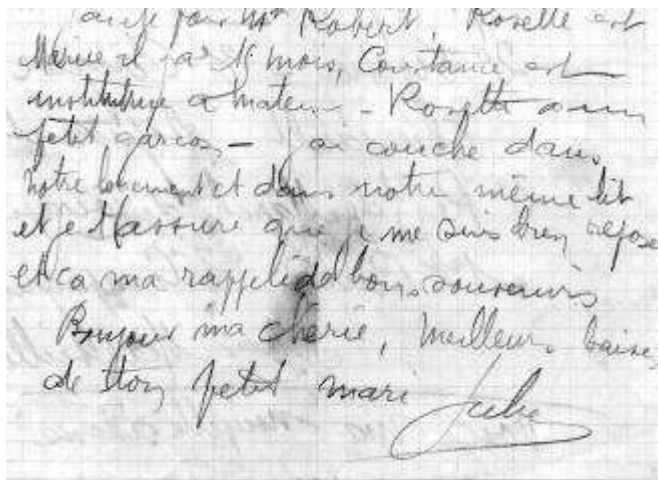 pour Mr Robert, Roselle est
Mariée il y a 15 mois, Constance est
institutrice a mateur - Rosette a un
petit garçon - j'ai couché dans
notre logement et dans notre même lit
et je t'assure que je me suis bien reposé
et ca ma rappelé de bons souvenirs
Bonjour ma chérie, meilleurs baisers
de ton petit mari